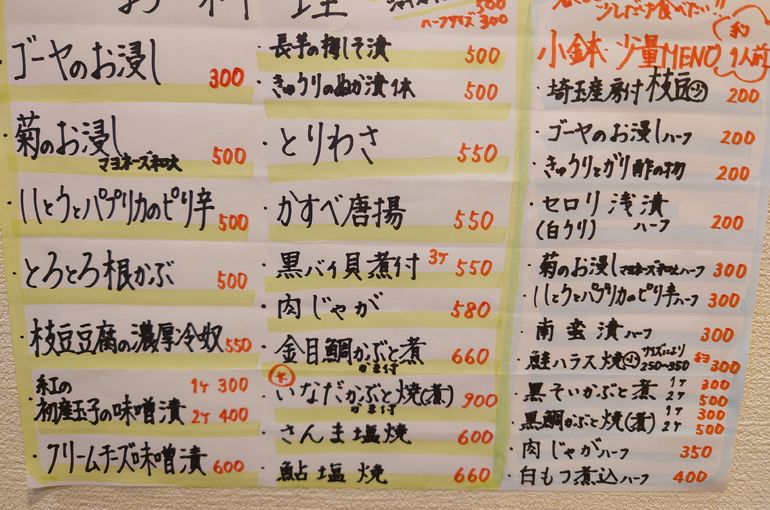 お料理
500
ハーフサイズ 300
・ゴーヤのお浸し 300
・菊のお浸し 500
マヨネーズ和え
・ししとうとパプリカのピリ辛 500
・とろとろ根かぶ 500
・枝豆豆腐の濃厚冷奴 550
・紅の
初産玉子の味噌漬 1ケ 300
2ケ 400
・クリームチーズ味噌漬 600
・長芋の梅しそ漬 500
・きゅうりのぬか漬1本 500
・とりわさ 550
・かすべ唐揚 550
・黒バイ貝煮付 3ケ 550
・肉じゃが 580
・金目鯛かぶと煮 660
かま付
・いなだかぶと焼(煮) 900
かま付
・さんま塩焼 600
・鮎塩焼 660
少しだけ食べたい!!
小鉢・少量MENU 約1人前
・埼玉産房付枝豆 小 200
・ゴーヤのお浸しハーフ 200
・きゅうりとガリ酢の物 200
・セロリ浅漬
(白クリ) ハーフ 200
・菊のお浸しマヨネーズ和えハーフ 300
・ししとうとパプリカのピリ辛ハーフ 300
・南蛮漬ハーフ 300
・鮭ハラス焼 小 サイズにより
250〜350 約300
・黒そいかぶと煮 1ケ 300
2ケ 500
・黒鯛かぶと焼(煮) 1ケ 300
2ケ 500
・肉じゃがハーフ 350
・白もつ煮込ハーフ 400